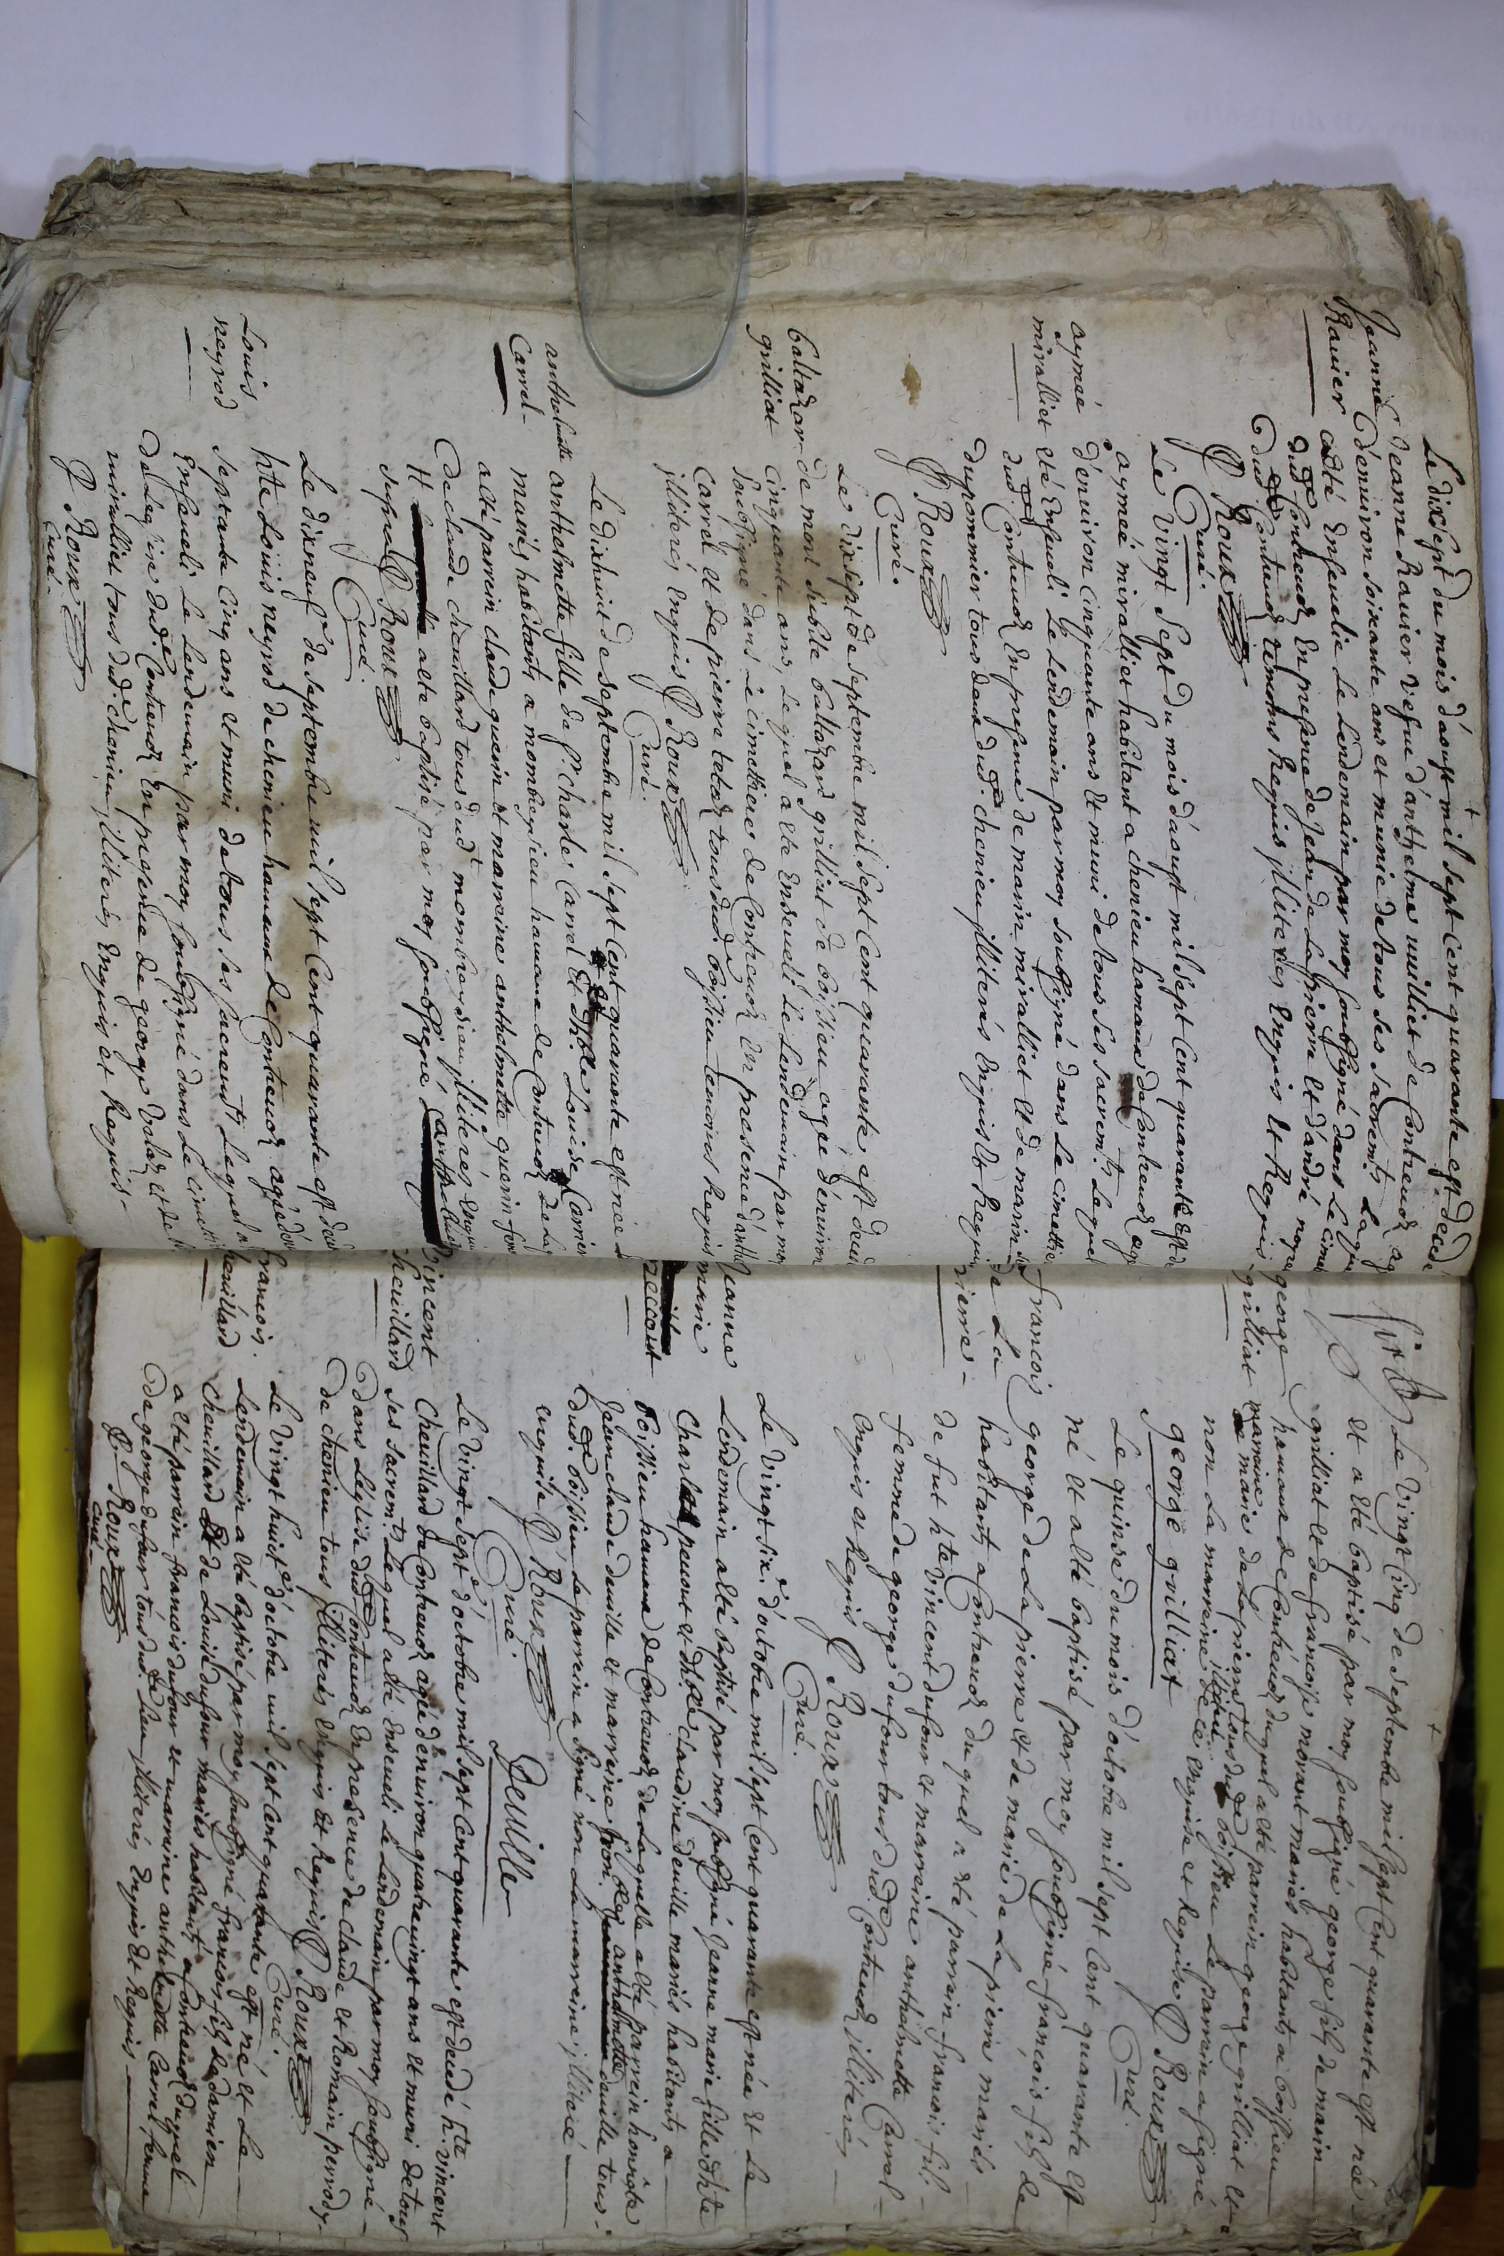 Jeanne
Ravier
Le dixsept du mois d'aoust mil sept cent quarante est deced
Jeanne Ravier vefue d'anthelme milliet de Contreuoz ag
d'enuiron soixante ans et munie de tous ses sacremts Laqu
a eté Enseuelie Le Lendemain par moy soubsigné dans Le cime
dud Contreuoz En presence de Jean de Lapierre et d'andré
dud Contreuoz temoins Requis illiteres Enquis et Requis
P Roux
Curé.
aymeé
miralliet
Le vingt sept du mois d'aoust mil sept cent quarante est de
aymeé miralliet habitant a chenieu hamau de Contreuoz ag
d'enuiron cinquante ans et muni de tous ses sacremts Lequel
a eté Enseueli Le Lendemain par moy soubsigné dans Le cimettie
dud Contreuoz En presence de marin miralliet et de marin
dupommier tous deux dud. chenieu illiterés Enquis et Requi
P Roux
Curé.
baltazar
grilliat
Le dixsept de septembre mil sept cent quarante est deced
de mort subite baltazard grilliat de boissieu agé d'enuiron
cinquante ans, Lequel a ete Enseueli Le Lendemain par mo
soubsigné dans Le cimettiere de Contreuoz En presence d'anthe
Carrel et de pierre tous dud. boissieu temoins Requis
illiterés Enquis P Roux
Curé.
anthelmette
Carrel
Le dixhuit de septembre mil sept Cent quarante est née
anthelmette fille de Sr Charle Carrel Et de Dlle Louise Carrier
mariés habitants a mombreysieu hamaux de Contreuoz
a eté parrein claude guerin et marreine anthelmette guerin fem
de claude cheuillard tous dudt mombreysieu illiterés Enqui
Et a ete baptisé par moy soubsigné
P Roux
Curé.
Louis
neyrod
Le dixneufe de septembre mil sept Cent quarante est dece
hte Louis neyrod de chenieu hamaux de Contreuoz agé d'en
septante cinq ans et muni de tous ses sacremts Lequel a
Enseueli Le Lendemain par moy soubsigné dans Le cimetti
de Leglise dud. Contreuoz En presence de george et de
miralliet tous dud. chenieu illiterés Enquis et Requis
P Roux
Curé.
george
grilliat
Le Vingt Cinq de septembre mil sept Cent quarante est née
et a eté baptisé par moy soubsigné george fils de marin
grilliat et de francoise morant mariés habitants a boissieu
hamaux de Contreuoz duquel a eté parrein george grilliat et
marraine marie de Lapierre tous dud boissieu Le parrein a signé
non La marreine de ce Enquise et Requise P Roux
george grilliat
Curé.
francois
de La
pierre
Le quinse du mois d'octobre mil sept Cent quarante est
né et a eté baptisé par moy soubsigné francois fils de
george de Lapierre et de marie de Lapierre mariés
habitants a Contreuoz duquel a eté parrein francois fils
de fut hte vincent dufour et marreine anthelmette Carrel
femme de george dufour tous dud. Contreuoz illiterés
Enquis et Requis P Roux
Curé.
Jeanne
marie
Le Vingt sixe d'octobre mil sept Cent quarante est née Et Le
Lendemain a eté baptisé par moy soubsigné Jeanne marie fille d'hte
Charle et de claudine deuille mariés habitants a
boissieu hamaux de Contreuoz de Laquelle a eté parrein honnete
Jean claude deuille et marreine anthelmette deuille tous
dud. boissieu Le parrein a signé non La marreine illiteré
enquise P Roux
Curé.
Deuille
Vincent
cheuillard
Le vingt septe d'octobre mil sept Cent quarante est decedé hte vincent
Cheuillard de Contreuoz agé d'enuiron quatreuingt ans et muni de tous
ses sacremts Lequel a eté Enseueli Le Lendemain par moy soubsigné
dans Leglise dud Contreuoz En presence de claude et Romain perrody
de chenieu tous illiterés Enquis et Requis P Roux
Curé.
francois
cheuillard
Le vingt huite d'octobre mil sept Cent quarante est né et Le
Lendemain a eté baptisé par moy soubsigné francois fils de damien
cheuillard et de Louise dufour mariés habitants a Contreuoz duquel
a eté parrein francois dufour et marreine anthelmette Carrel femme
de george dufour tous dud. Lieu illiterés Enquis et Requis
P Roux
Curé